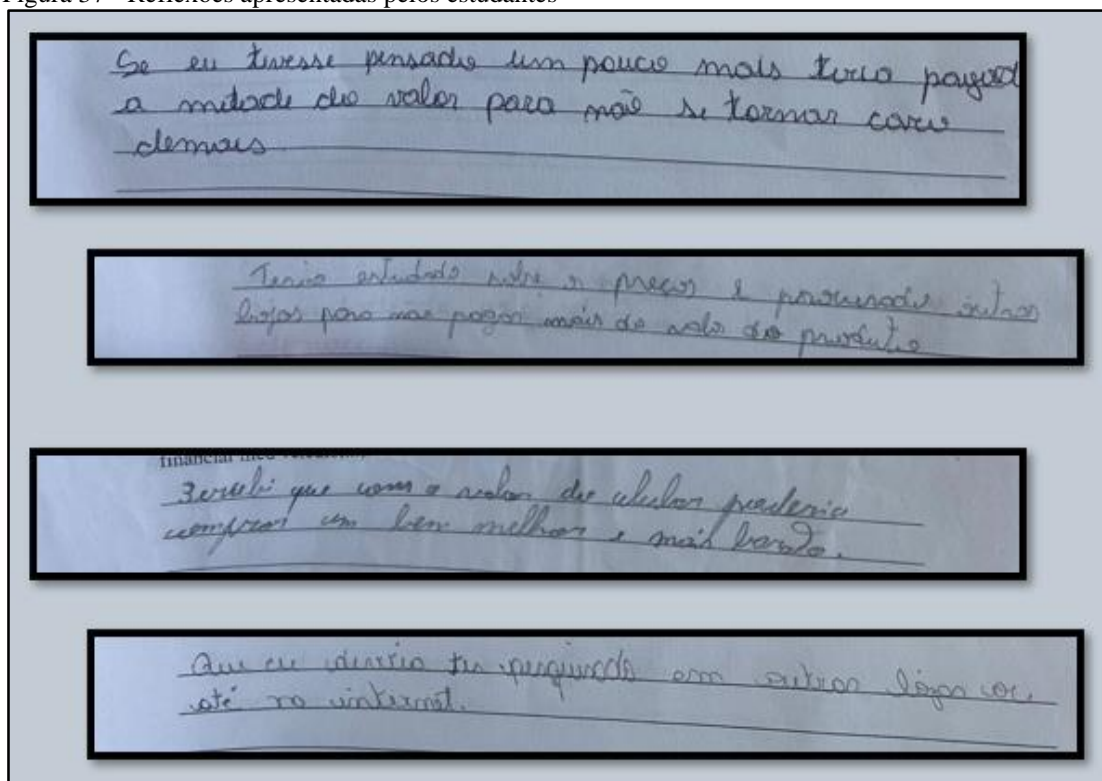 Figura 37 - Reflexões apresentadas pelos estudantes
Se eu tivesse pensado um pouco mais teria pagad
a metade do valor para não se tornar caro
demais
Teria estudado sobre o preços e procurado outros
lojas para não pagar mais do valo do produto
financial
Percebi que com o valor do celular poderia
comprar um bem melhor e mais barato.
Que eu deveria ter pesquisado em outras lojas
até na internet.